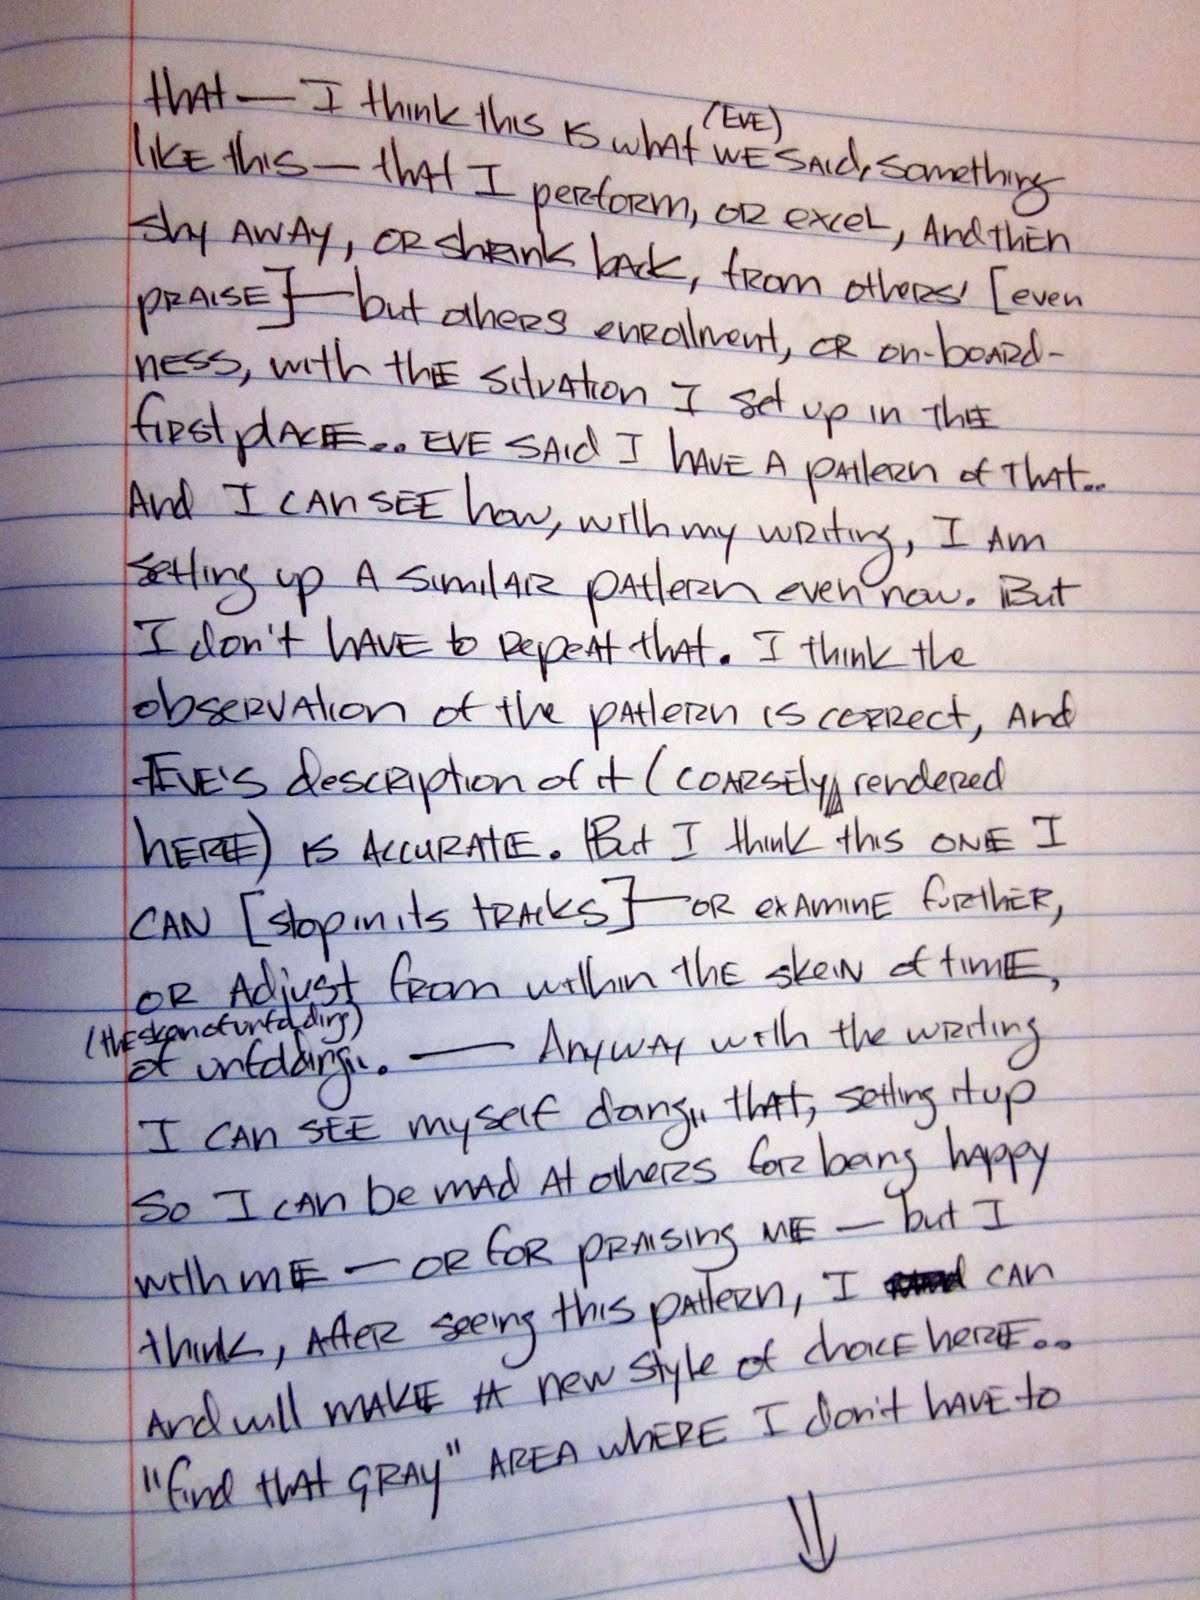 that — I think this is what WE said, something
(EVE)
like this — that I perform, or excel, and then
shy away, or shrink back, from others' [even
praise] — but others enrollment, or on-board-
ness, with the situation I set up in the
first place... Eve said I have a pattern of that..
And I can see how, with my writing, I am
setting up a similar pattern even now. But
I don't have to repeat that. I think the
observation of the pattern is correct, and
Eve's description of it (coarsely, rendered
here) is accurate. But I think this one I
can [stop in its tracks] — or examine further,
or adjust from within the skein of time,
(the skein of unfolding)
of unfolding... — Anyway with the writing
I can see myself doing,, that, setting it up
so I can be mad at others for being happy
with me — or for praising me — but I
think, after seeing this pattern, I can
and will make a new style of choice here..
"find that gray" area where I don't have to